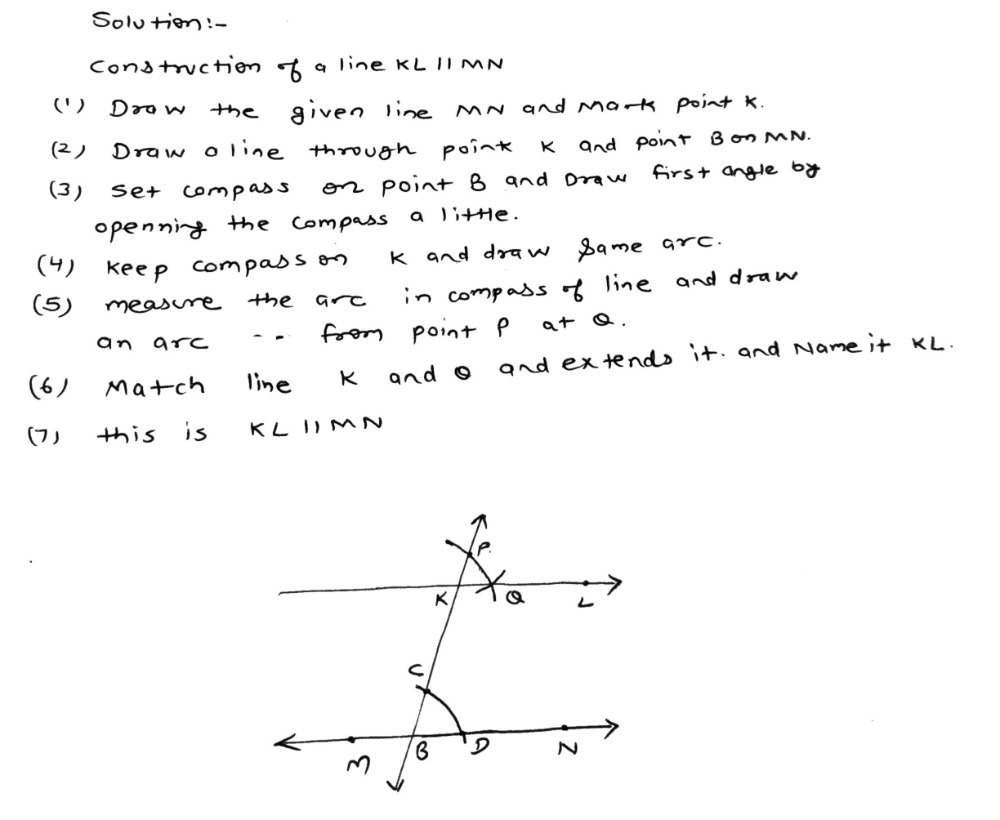 Solution:-
Construction of a line KL || MN
(1) Draw the given line MN and Mark point K.
(2) Draw a line through point K and point B on MN.
(3) Set compass on point B and Draw first angle by
openning the compass a little.
(4) Keep compass on K and draw same arc.
(5) measure the arc in compass of line and draw
an arc -- from point P at Q.
(6) Match line K and Q and extends it. and Name it KL.
(7) this is KL || MN
P.
K Q L
C
M B D N